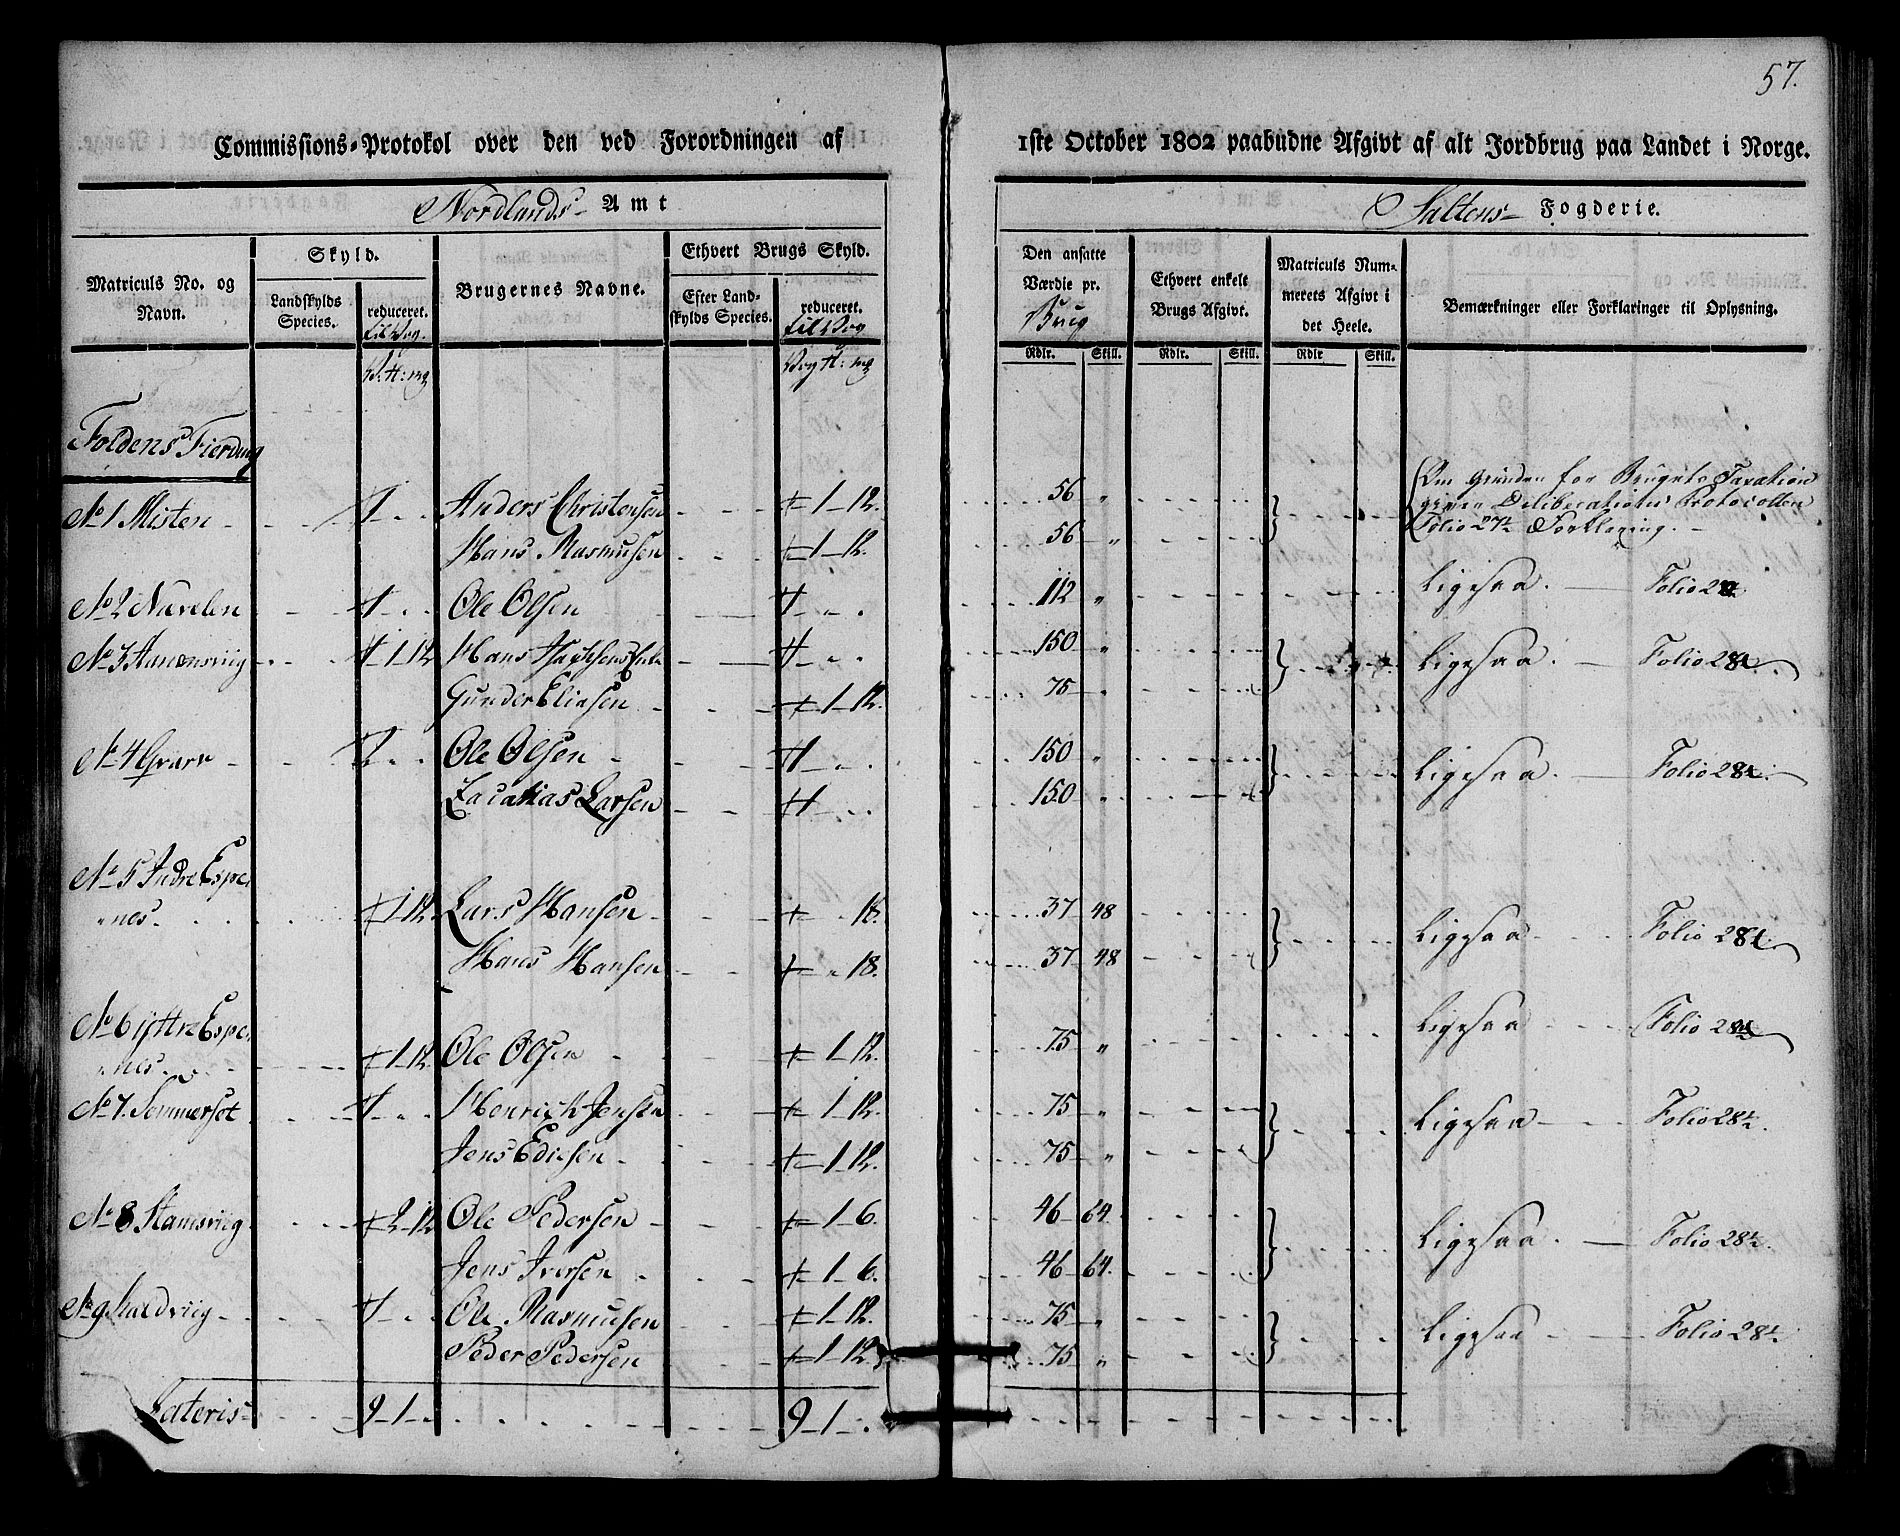 57.
Commissions-Protokol over den ved Forordningen af 1ste October 1802 paabudne Afgivt af alt Jordbrug paa Landet i Norge.
Nordlands Amt
Saltens Fogderie.
Matriculs No. og Navn.
Skyld.
Landskylds Species.
reduceret.
til Vog.
Brugernes Navne.
Ethvert Brugs Skyld.
Efter Landskylds Species.
reduceret.
til Vog
Den ansatte Værdie pr.
Brug
Ethvert enkelte Brugs Afgivt.
Matriculs Nummerets Afgivt i det Heele.
Bemærkninger eller Forklaringer til Oplysning.
Rdlr. Skill. Rdlr. Skill. Rdlr Skill.
Foldens Fierding
No 1 Misten 1 Anders Christensen 1 12. 56 „ Om Grunden for Brugets Taxation
giver Deliberations Protocollen
Folio 27 Forklaring.
Hans Rasmusen 1 12. 56 „
No 2 Nævelen 1 Ole Olsen 1 112 „ Ligesaa. Folio
No 3 1 1 12 Hans 1 150 „ Ligesaa. Folio 28
Gunder Eliasen 1 12. 75 „
No 4 2 Ole Olsen 1 150 „ Ligesaa. Folio 28
Zacarias Larsen 1 150 „
No 5 Indre Espe-
nes. 1 12. Lars Hansen 18. 37 48 Ligesaa Folio 28
Hans Hansen 18. 37 48
No 6 yttre Espe-
nes. 1 12. Ole Olsen 1 12. 75 „ Ligesaa Folio 28
No 7. Sommerset 1 Henrich Jensen 1 12. 75 „ Ligesaa Folio 28
Jens 1 12. 75 „
No 8 Stamsviig 2 12 Ole Pedersen 1 6. 46 64. Ligesaa. Folio 28
Jens Iversen 1 6. 46 64.
No 9 1 Ole Rasmusen 1 12. 75 „ Ligesaa Folio 28
Peder Pedersen 1 12. 75 „
Lateris 9 1 9 1